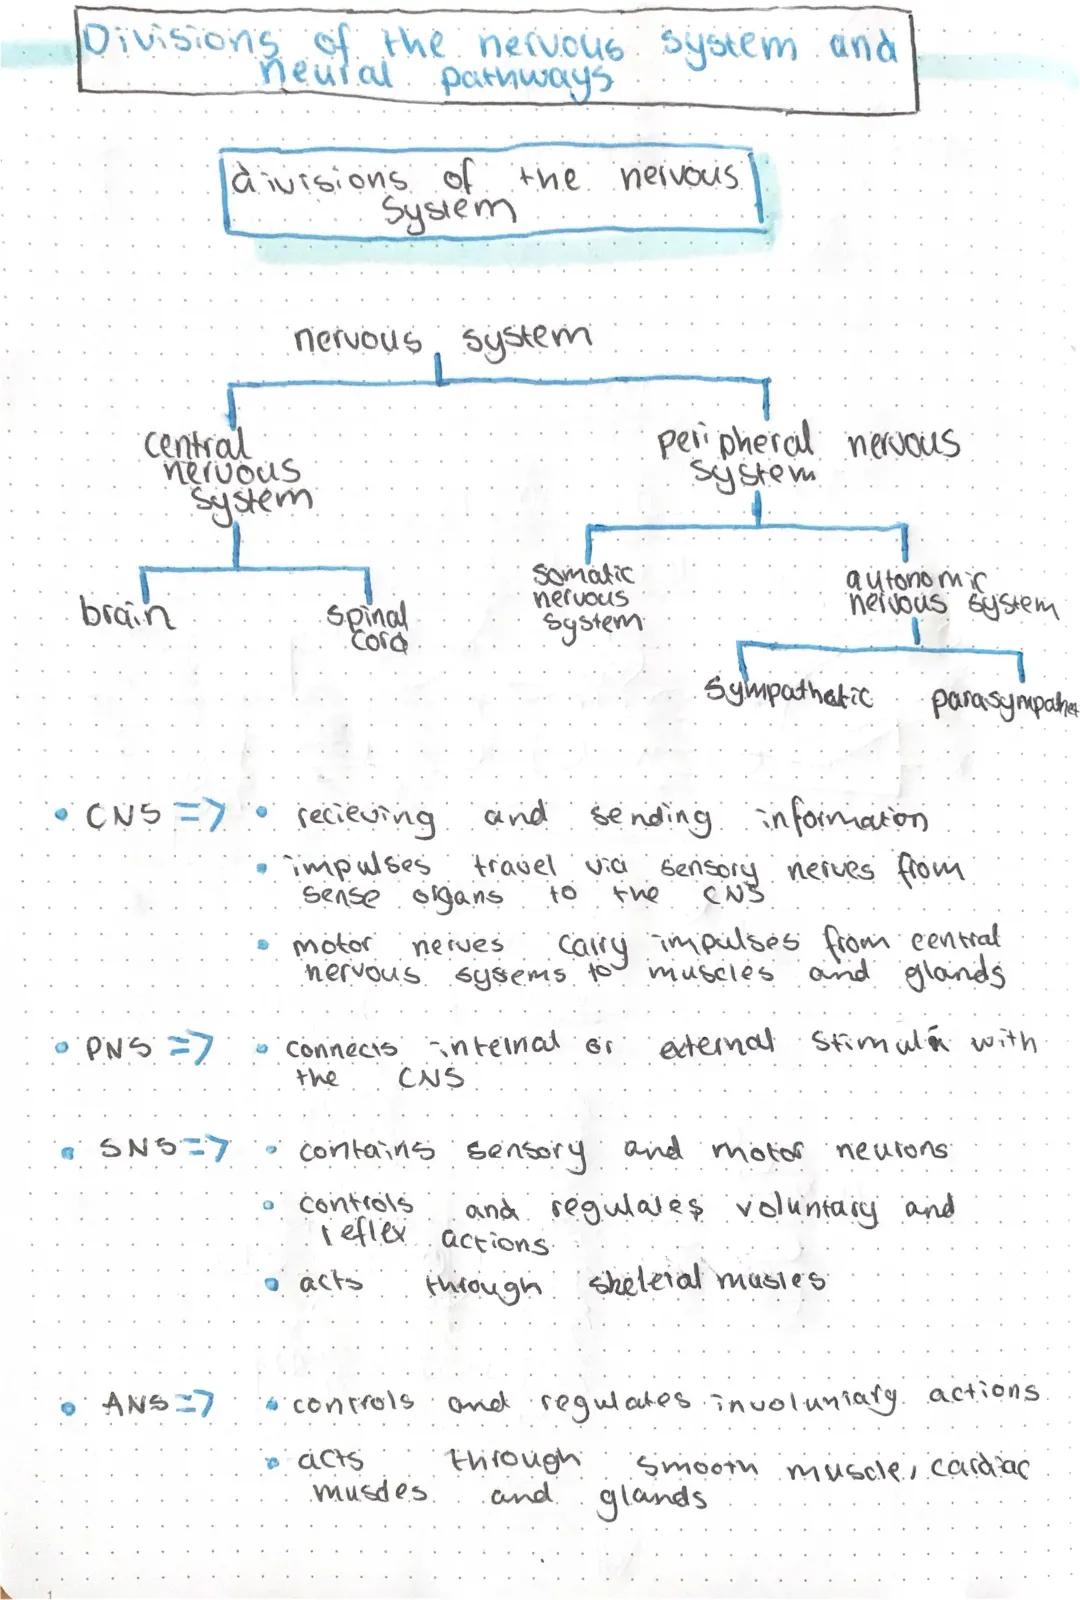 Divisions of the nervous system and
neural pathways
divisions of the nervous
System
nervous system
central
nervous
system
peripheral nervous
system
brain
spinal
cord
somatic
nervous
system
autonomic
nervous system
Sympathetic
parasympathet
• CNS => • recieving and sending information
• impulses travel via sensory nerves from
sense organs to the CNS
• motor nerves carry impulses from central
nervous sysems to muscles and glands
• PNS => • connects internal or external stimula with
the CNS
• SNS => • contains sensory and motor neurons
• controls and regulates voluntary and
reflex actions
• acts through skeletal musles
• ANS => • controls and regulates involuntary actions
• acts through smooth muscle, cardiac
muscles and glands
1